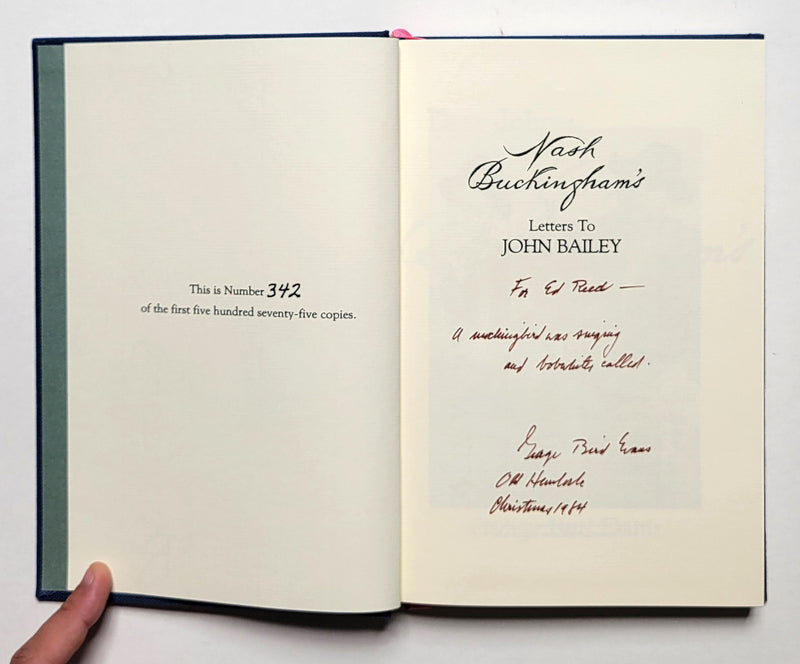 This is Number 342
of the first five hundred seventy-five copies.
Nash
Buckingham's
Letters To
JOHN BAILEY
For Ed Reed —
A mockingbird was singing
and bobwhites called.
George Bird Evans
Old Hemlock
Christmas 1984